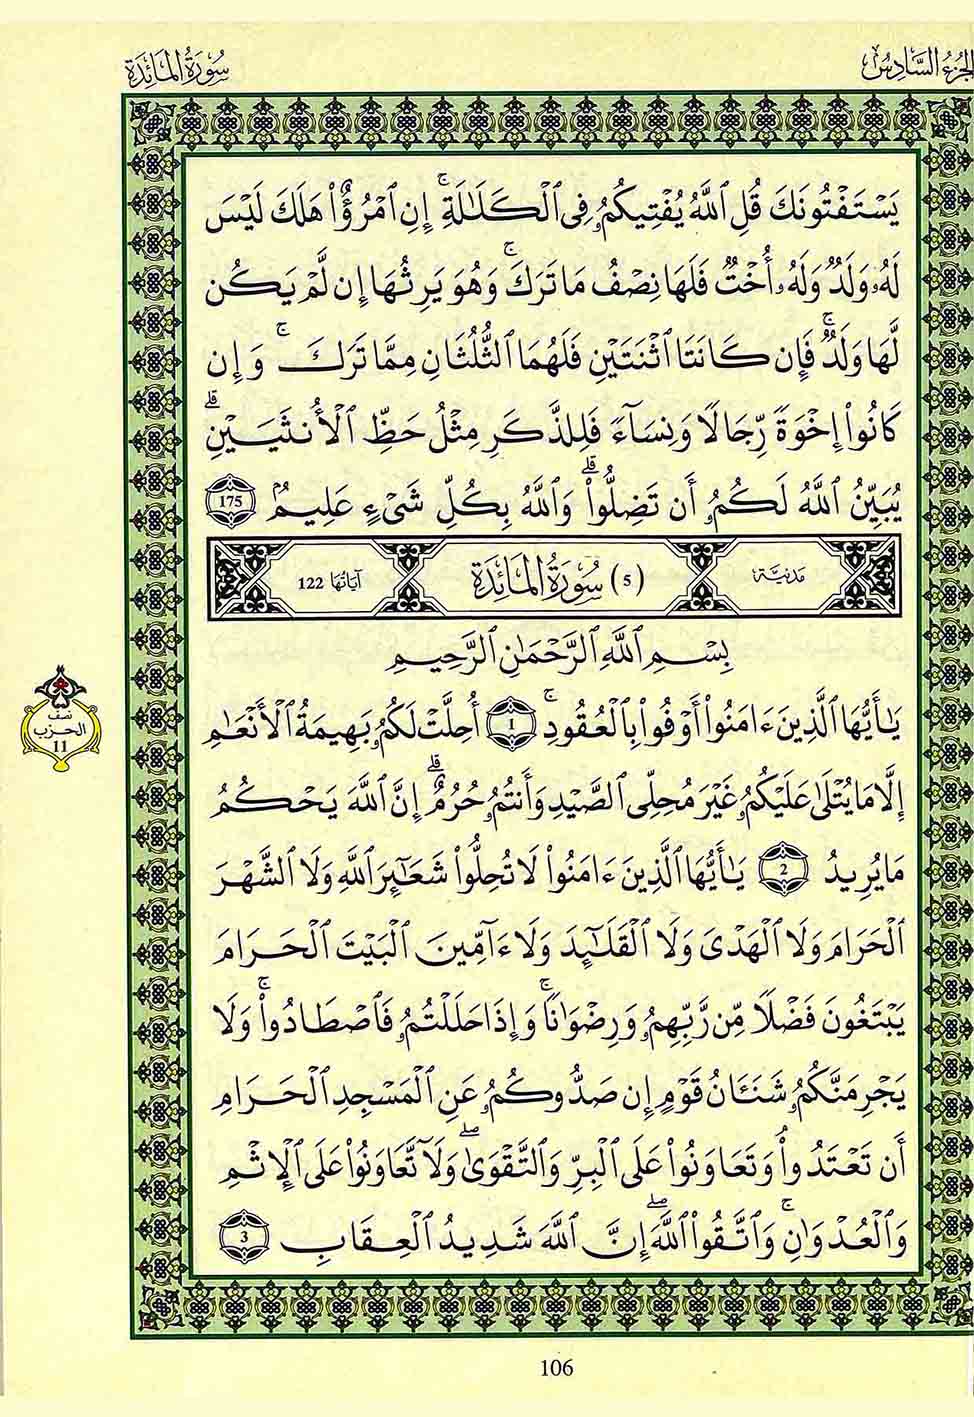 الجزء السادس
سورة المائدة
يَسْتَفْتُونَكَ قُلِ ٱللَّهُ يُفْتِيكُمُۥ فِى ٱلْكَلَٰلَةِ ۚ إِنِ ٱمْرُؤٌا۟ هَلَكَ لَيْسَ
لَهُۥ وَلَدٌ وَلَهُۥ أُخْتٌ فَلَهَا نِصْفُ مَا تَرَكَ ۚ وَهُوَ يَرِثُهَا إِن لَّمْ يَكُن
لَّهَا وَلَدٌ ۚ فَإِن كَانَتَا ٱثْنَتَيْنِ فَلَهُمَا ٱلثُّلُثَانِ مِمَّا تَرَكَ ۚ وَإِن
كَانُوا۟ إِخْوَةً رِّجَالًا وَنِسَآءً فَلِلذَّكَرِ مِثْلُ حَظِّ ٱلْأُنثَيَيْنِ ۗ
يُبَيِّنُ ٱللَّهُ لَكُمُۥ أَن تَضِلُّوا۟ ۗ وَٱللَّهُ بِكُلِّ شَىْءٍ عَلِيمٌ 175
مدنية (5) سورة المائدة آياتها 122
بِسْمِ ٱللَّهِ ٱلرَّحْمَٰنِ ٱلرَّحِيمِ
يَٰأَيُّهَا ٱلَّذِينَ ءَامَنُوا۟ أَوْفُوا۟ بِالْعُقُودِ ۚ 1 أُحِلَّتْ لَكُمُۥ بَهِيمَةُ ٱلْأَنْعَٰمِ
إِلَّا مَا يُتْلَىٰ عَلَيْكُمُۥ غَيْرَ مُحِلِّى ٱلصَّيْدِ وَأَنتُمُۥ حُرُمٌ ۗ إِنَّ ٱللَّهَ يَحْكُمُ
مَا يُرِيدُ 2 يَٰأَيُّهَا ٱلَّذِينَ ءَامَنُوا۟ لَا تُحِلُّوا۟ شَعَٰٓئِرَ ٱللَّهِ وَلَا ٱلشَّهْرَ
ٱلْحَرَامَ وَلَا ٱلْهَدْىَ وَلَا ٱلْقَلَٰٓئِدَ وَلَا ءَآمِّينَ ٱلْبَيْتَ ٱلْحَرَامَ
يَبْتَغُونَ فَضْلًا مِّن رَّبِّهِمُۥ وَرِضْوَٰنًا ۚ وَإِذَا حَلَلْتُمُۥ فَٱصْطَادُوا۟ ۚ وَلَا
يَجْرِمَنَّكُمُۥ شَنَـَٔانُ قَوْمٍ إِن صَدُّوكُمُۥ عَنِ ٱلْمَسْجِدِ ٱلْحَرَامِ
أَن تَعْتَدُوا۟ وَتَعَاوَنُوا۟ عَلَى ٱلْبِرِّ وَٱلتَّقْوَىٰ ۖ وَلَآ تَّعَاوَنُوا۟ عَلَى ٱلْإِثْمِ
وَٱلْعُدْوَٰنِ ۚ وَٱتَّقُوا۟ ٱللَّهَ ۖ إِنَّ ٱللَّهَ شَدِيدُ ٱلْعِقَابِ 3
نصف
الحزب
11
106